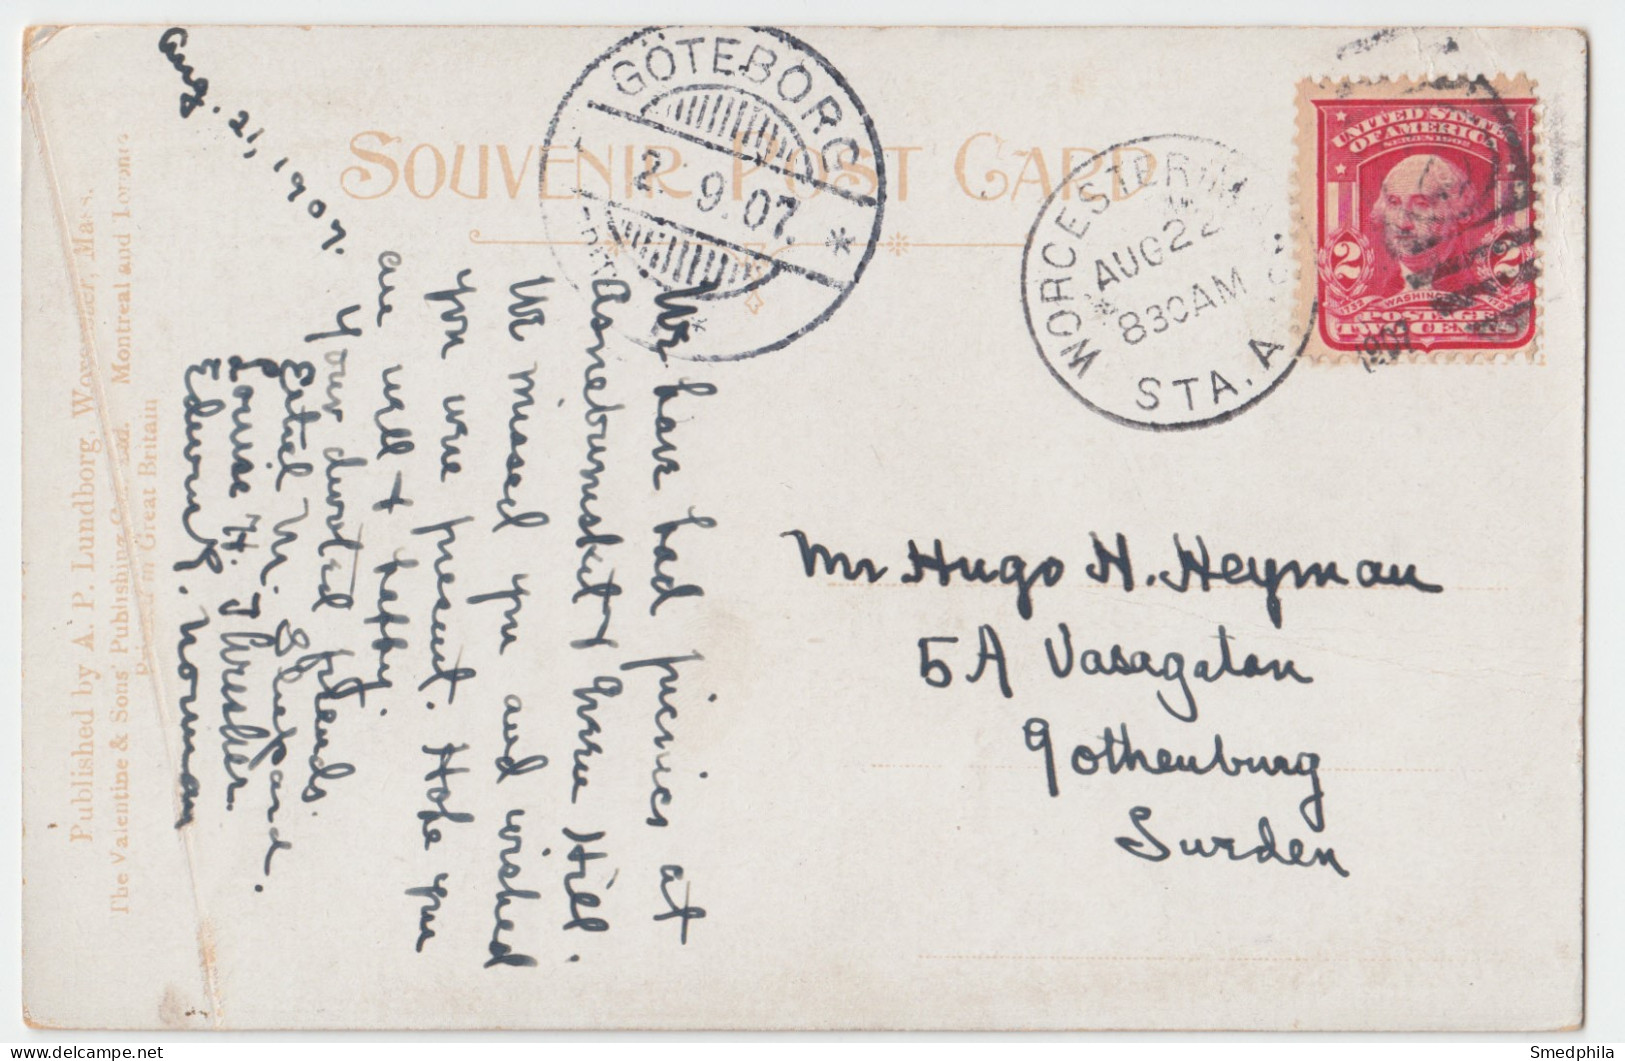 Aug. 21, 1907.
We have had picnics at
Asnebumskit & Green Hill.
We missed you and wished
you were present. Hope you
are well & happy.
Your devoted friends.
Ethel M. Shepard.
Louise H. Thresher.
Edwin E. Norman
SOUVENIR POST CARD
GÖTEBORG
2.9.07.
WORCESTER, MASS.
AUG 22
830AM
STA. A
1907
UNITED STATES
OF AMERICA
SERIES 1902
2 2
1732 WASHINGTON 1799
POSTAGE
TWO CENTS
Mr Hugo H. Heyman
5A Vasagatan
Gothenburg
Sweden
Published by A. P. Lundborg, Worcester, Mass.
The Valentine & Sons' Publishing Co., Ltd. Montreal and Toronto
Printed in Great Britain
Smedphila